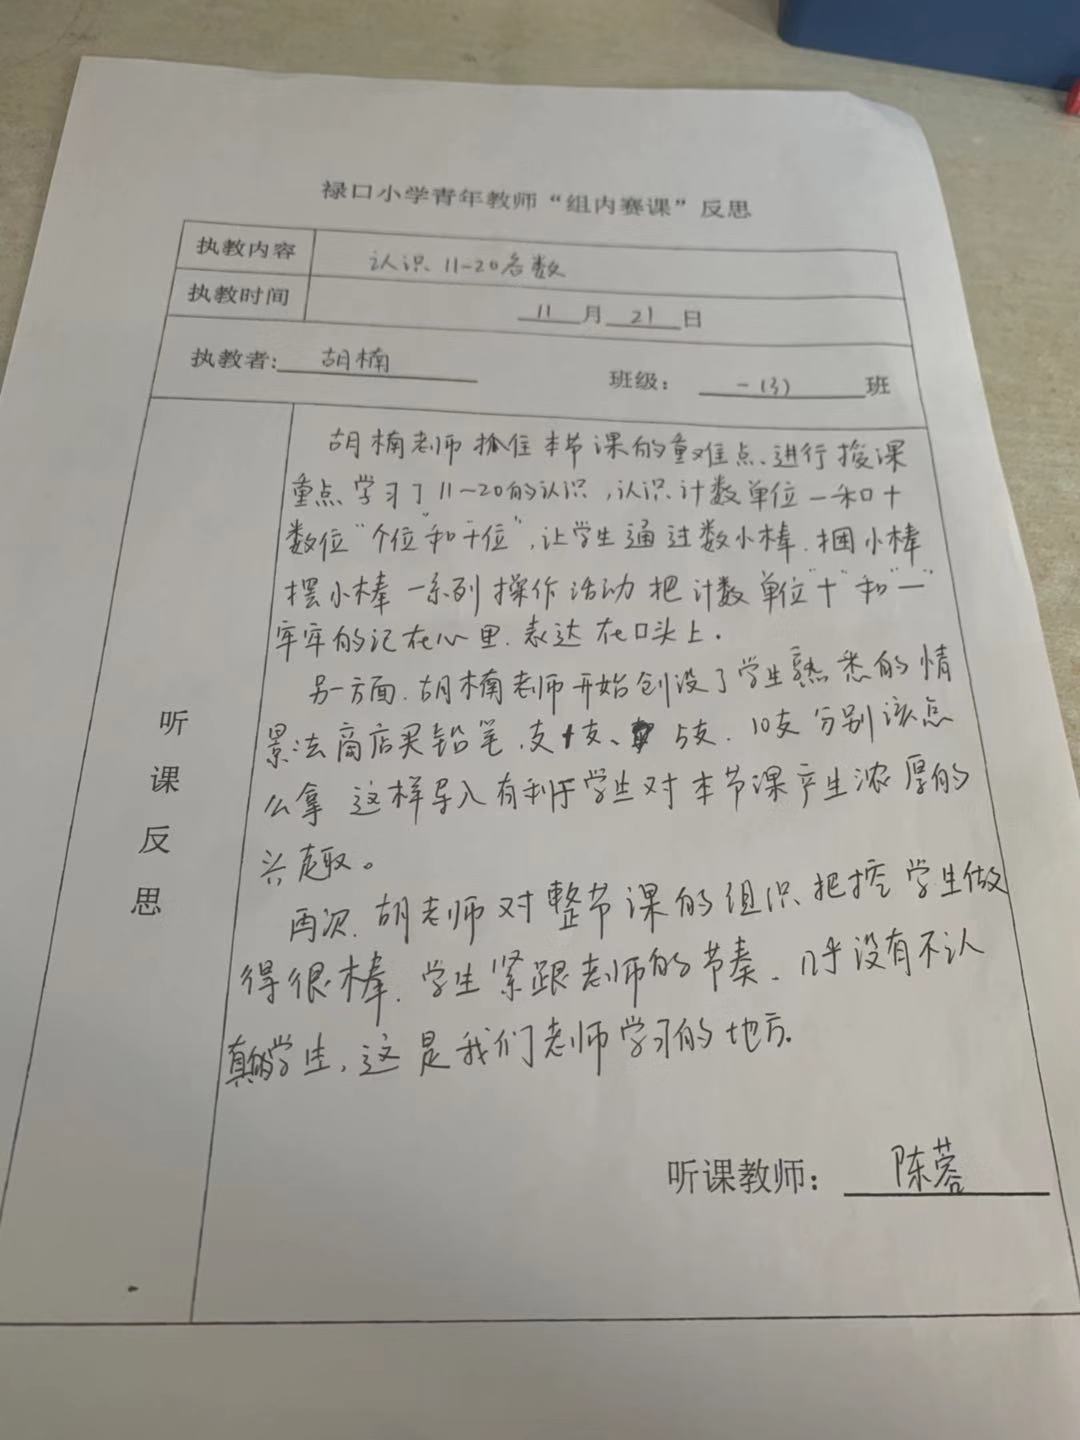 禄口小学青年教师“组内赛课”反思
执教内容 认识 11-20各数
执教时间 11 月 21 日
执教者: 胡楠 班级: 一(3) 班
听课反思
胡楠老师抓住本节课的重难点、进行授课
重点学习了11~20的认识,认识计数单位一和十
数位“个位”和“十位”,让学生通过数小棒.捆小棒
摆小棒一系列操作活动把计数单位“十”和“一”
牢牢的记在心里.表达在口头上。
另一方面.胡楠老师开始创设了学生熟悉的情
景法商店买铅笔.支 支、5支.10支分别该怎
么拿 这样导入有利于学生对本节课产生浓厚的
兴趣。
再次.胡老师对整节课的组织、把控学生做
得很棒.学生紧跟老师的节奏、几乎没有不认
真的学生,这是我们老师学习的地方.
听课教师: 陈蓉